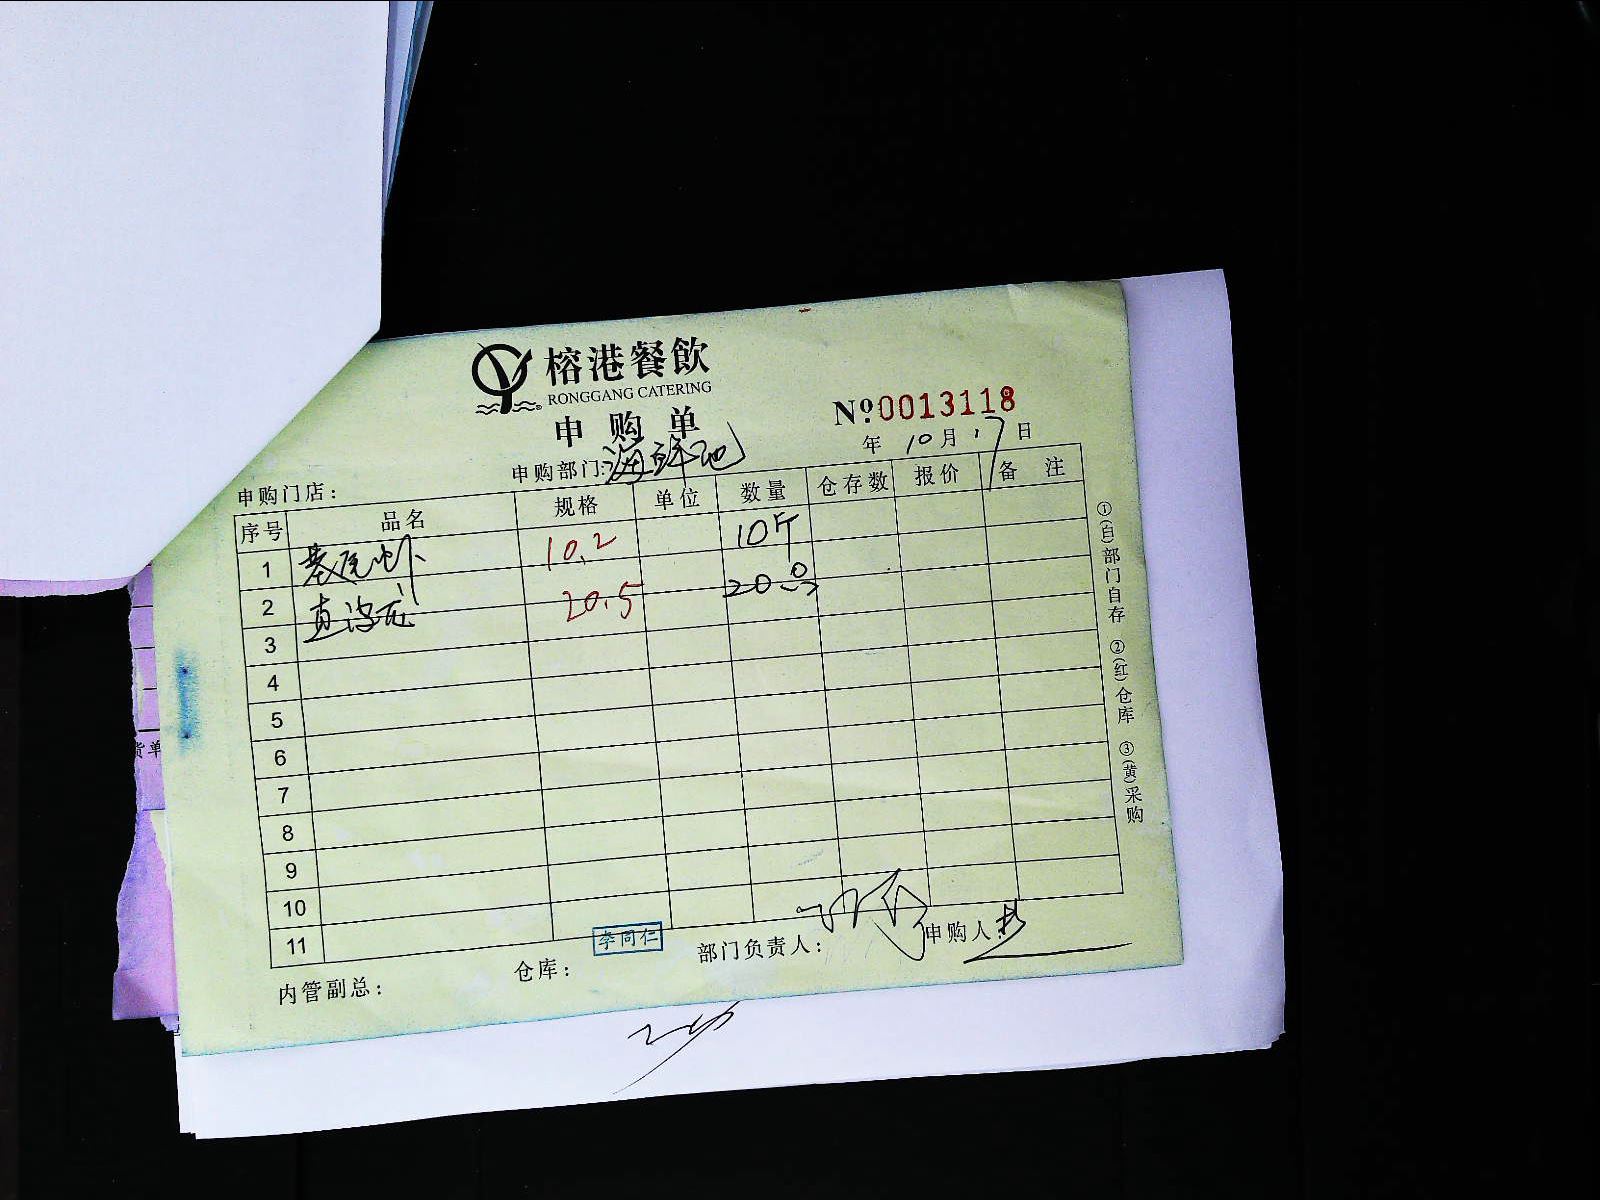 榕港餐飲
RONGGANG CATERING
申购单
№0013118
年 10月 17日
申购门店: 申购部门:海鲜池
序号 品名 规格 单位 数量 仓存数 报价 备注
1 基尾虾 10.2 10斤
2 直波龙 20.5 20
3
4
5
6
7
8
9
10
11
内管副总: 仓库: 李同仁 部门负责人: 申购人:
①(白)部门自存 ②(红)仓库 ③(黄)采购
货单